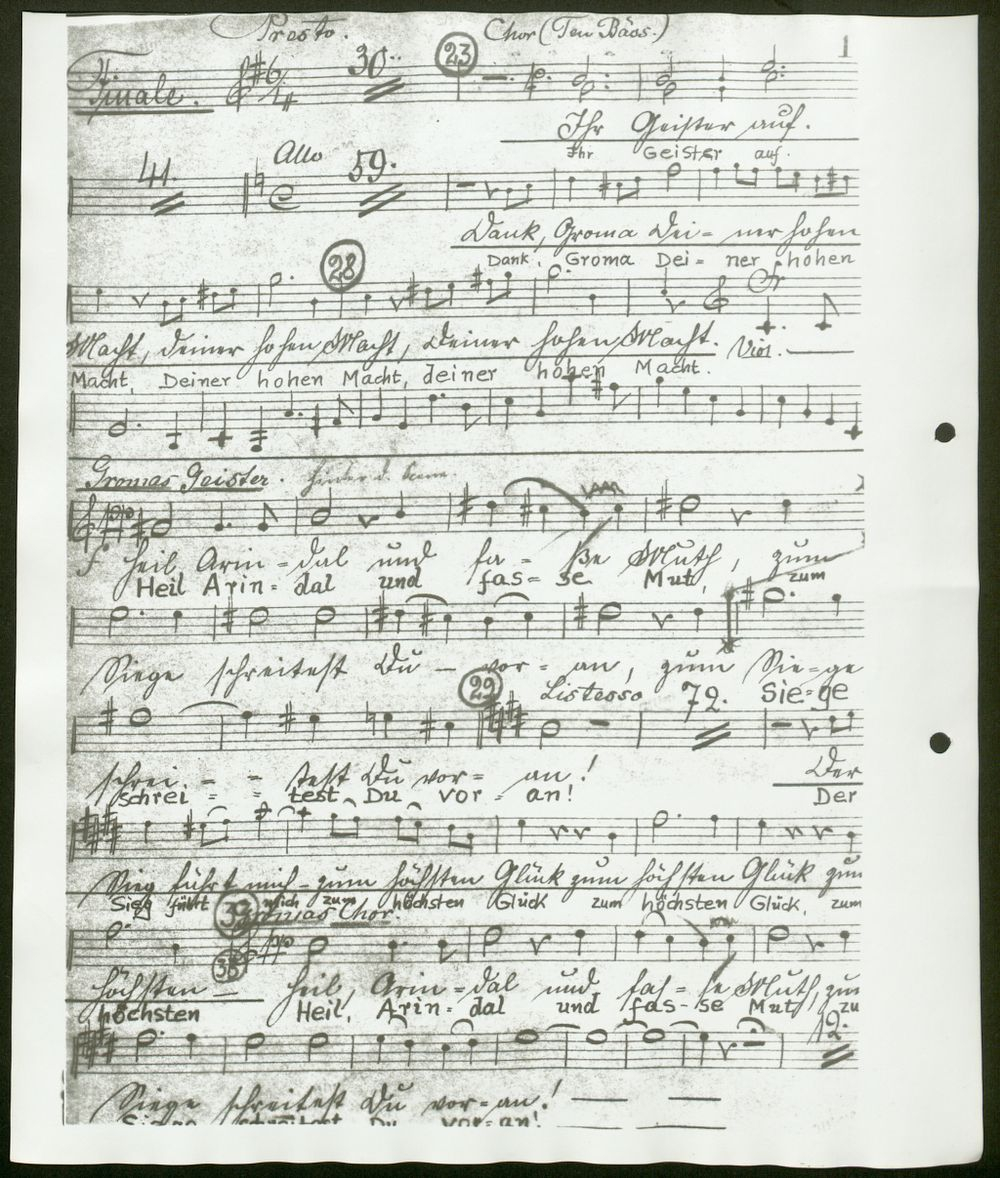 Presto. Chor (Ten Bäss.) 1
Finale. 30. 23
Ihr Geister auf.
Ihr Geister auf.
41. Allo 59.
Dank, Groma Dei = ner hohen
Dank, Groma Dei = ner hohen
28
Macht, deiner hohen Macht, deiner hohen Macht. Viol.
Macht, Deiner hohen Macht, deiner hohen Macht.
Gromas Geister.
Heil, Arin = dal und fa = ße Muth, zum
Heil Arin = dal und fas = se Mut, zum
Siege schreitest Du – vor = an, zum Sie = ge
29 Listesso 72. Sie = ge
schrei = = test Du vor = an! Der
schrei = = test Du vor = an! Der
Sieg führt mich – zum höchsten Glück zum höchsten Glück zum
Sieg führt mich zum höchsten Glück zum höchsten Glück, zum
Gromas Chor.
pp
höchsten — Heil, Arin = dal und fas = se Muth, zum
höchsten Heil, Arin = dal und fas = se Mut zu
12.
Siege schreitest Du vor = an! — —
Siege schreitest Du vor = an!